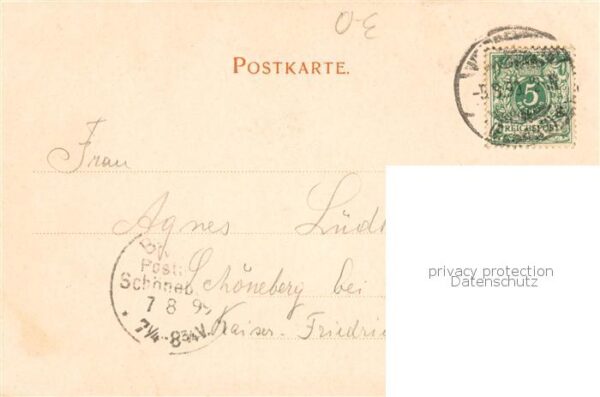 O-E
POSTKARTE.
5
REICHSPOST
Frau
Agnes Lüdt
Schöneberg bei
Kaiser-Friedric
Post
Schöneb
7 8 9
7¼-8¾V.
privacy protection
Datenschutz